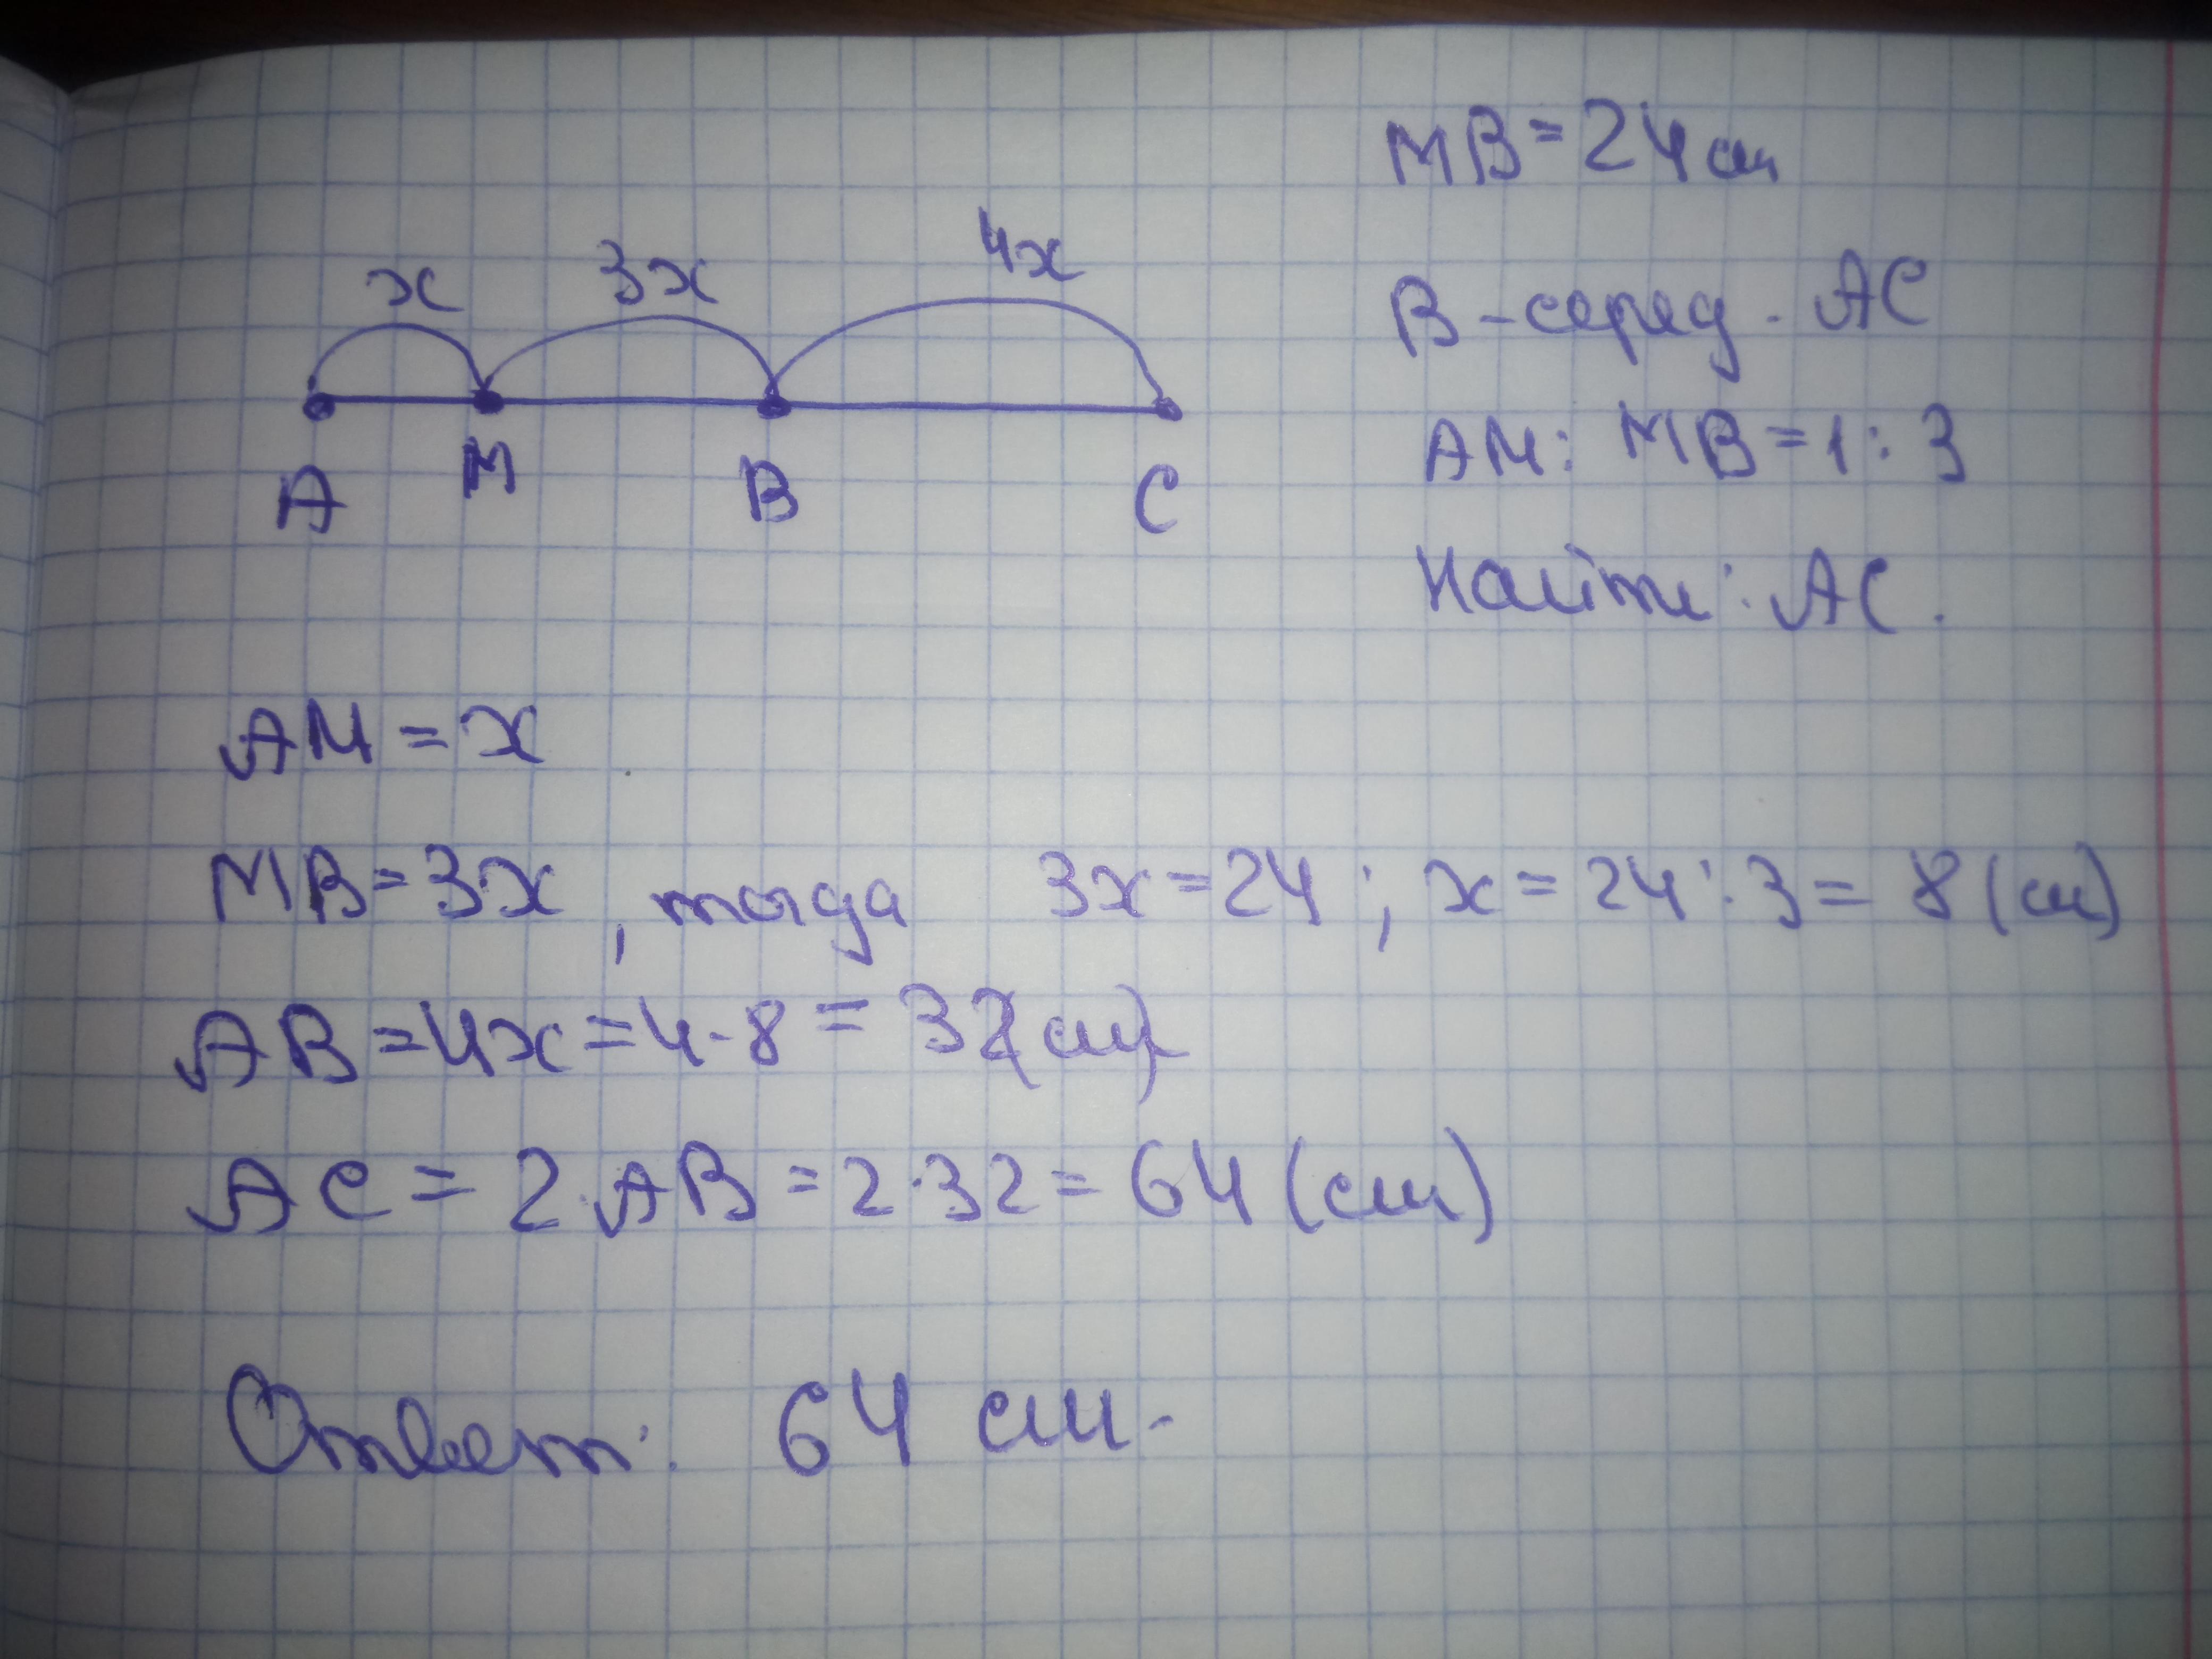 MB = 24 см
B - серед. AC
AM : MB = 1 : 3
Найти: AC.
x 3x 4x
A M B C
AM = x
MB = 3x, тогда 3x = 24; x = 24 : 3 = 8 (см)
AB = 4x = 4 · 8 = 32 (см)
AC = 2 · AB = 2 · 32 = 64 (см)
Ответ: 64 см.